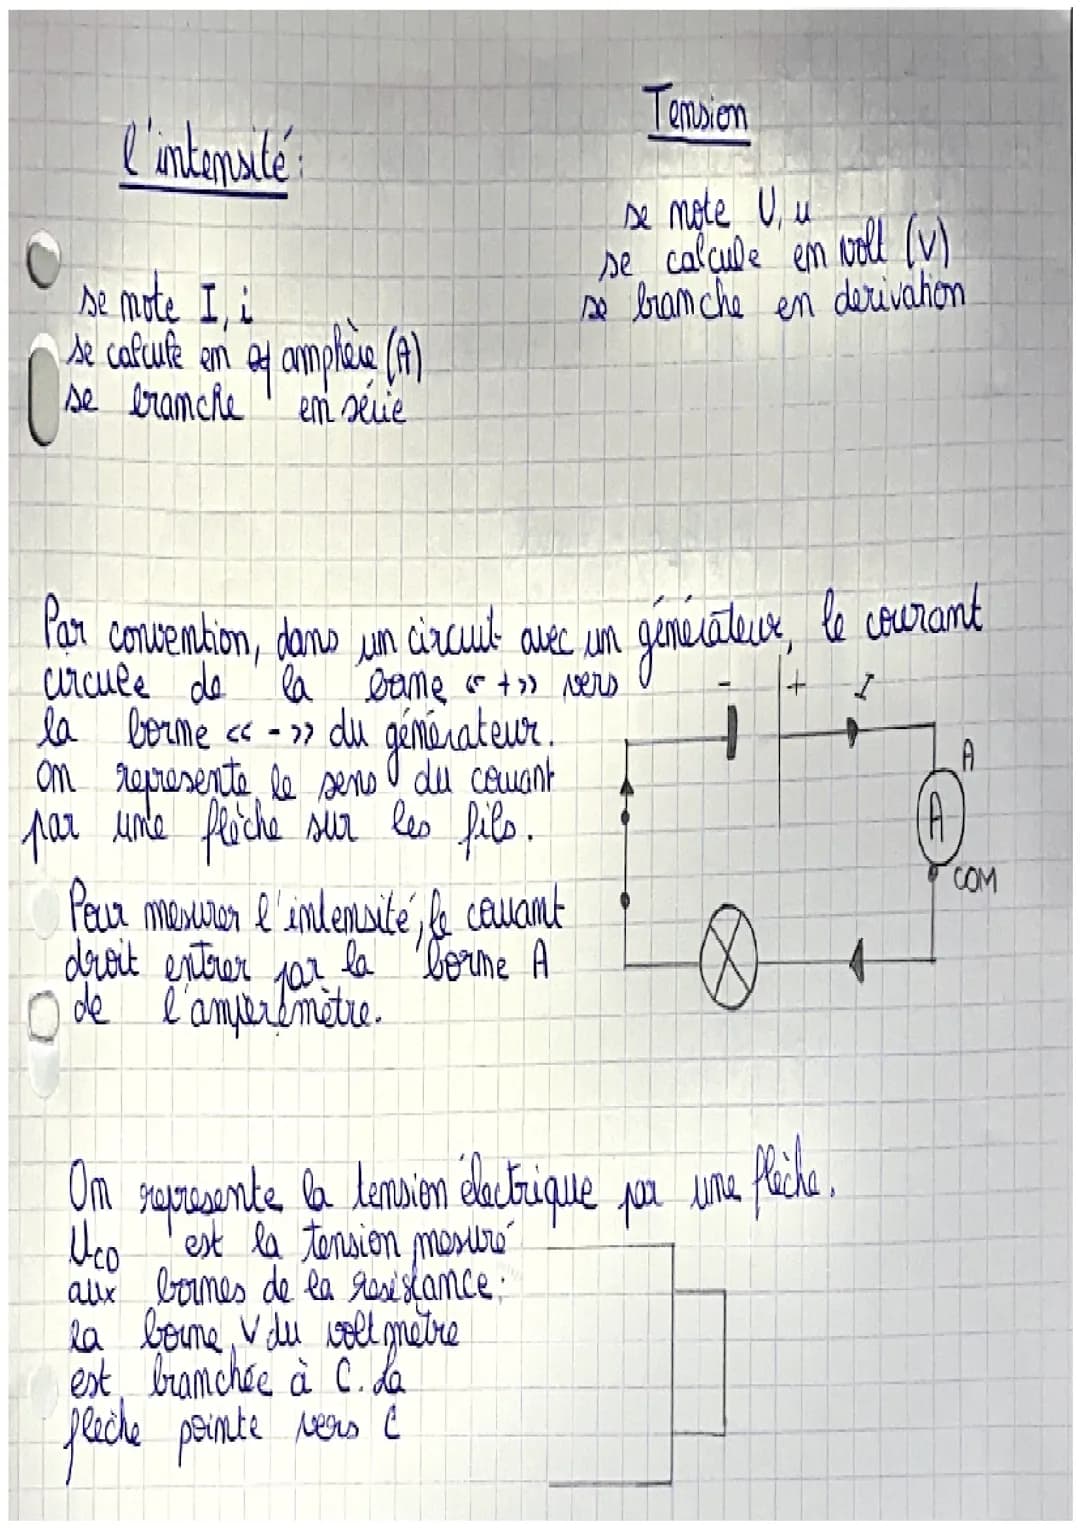 l'intensité:
se note I, i
se calcule en amphère (A)
se branche en série
Tension
se note U, u
se calcule en volt (V)
se branche en derivation
Par convention, dans un circuit avec un générateur, le courant
circule de la borne «+» vers
la borme << - >> du générateur.
On représente le sens du courant
par une flèche sur les fils.
- + I
A
A
COM
Pour mesurer l'intensité, le courant
droit entrer par la borne A
de l'ampèremètre.
On représente la tension électrique par une flèche.
UCD est la tension mesuré
aux bornes de la resistance:
la borne V du voltmètre
est branchée à C. La
flèche pointe vers C